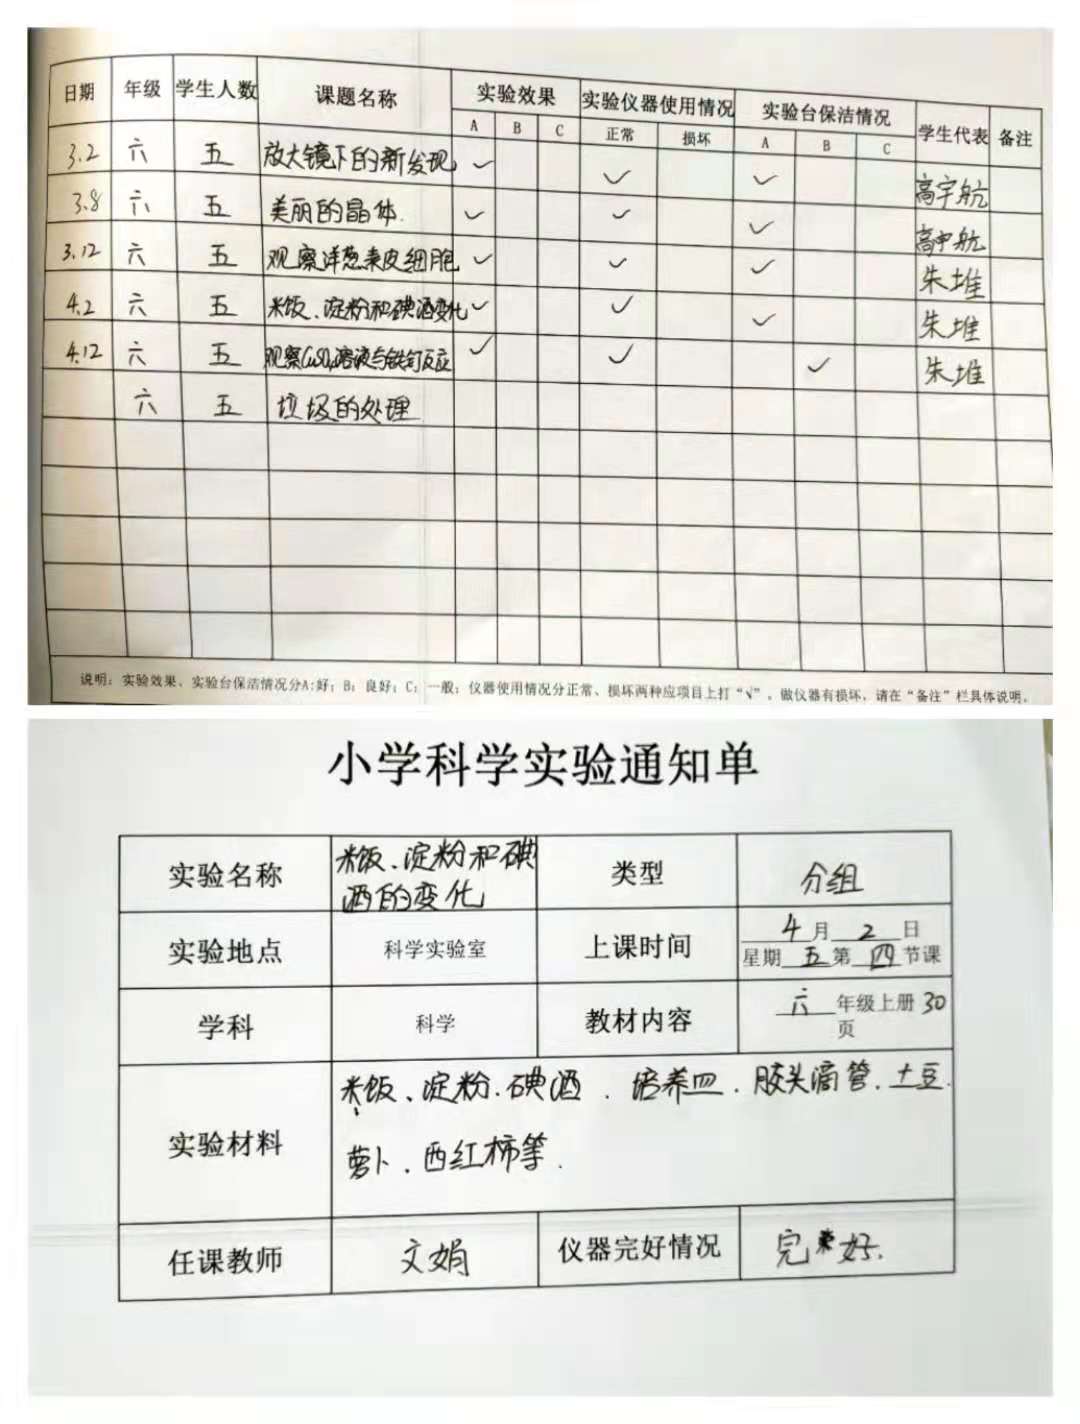 日期 年级 学生人数 课题名称 实验效果 实验仪器使用情况 实验台保洁情况 学生代表 备注
A B C 正常 损坏 A B C
3.2 六 五 放大镜下的新发现 ✓ ✓ ✓ 高宇航
3.8 六 五 美丽的晶体. ✓ ✓ ✓ 高宇航
3.12 六 五 观察洋葱表皮细胞 ✓ ✓ ✓ 朱堆
4.2 六 五 米饭、淀粉和碘酒变化 ✓ ✓ ✓ 朱堆
4.12 六 五 观察CuSO4溶液与铁钉反应 ✓ ✓ ✓ 朱堆
六 五 垃圾的处理
说明：实验效果、实验台保洁情况分A:好；B：良好；C：一般；仪器使用情况分正常、损坏两种应项目上打“√”。做仪器有损坏，请在“备注”栏具体说明。
小学科学实验通知单
实验名称 米饭、淀粉和碘 类型 分组
酒的变化
实验地点 科学实验室 上课时间 4月2日
星期五第四节课
学科 科学 教材内容 六年级上册30
页
实验材料 米饭、淀粉.碘酒.培养皿.胶头滴管.土豆.
萝卜.西红柿等.
任课教师 文娟 仪器完好情况 完好.